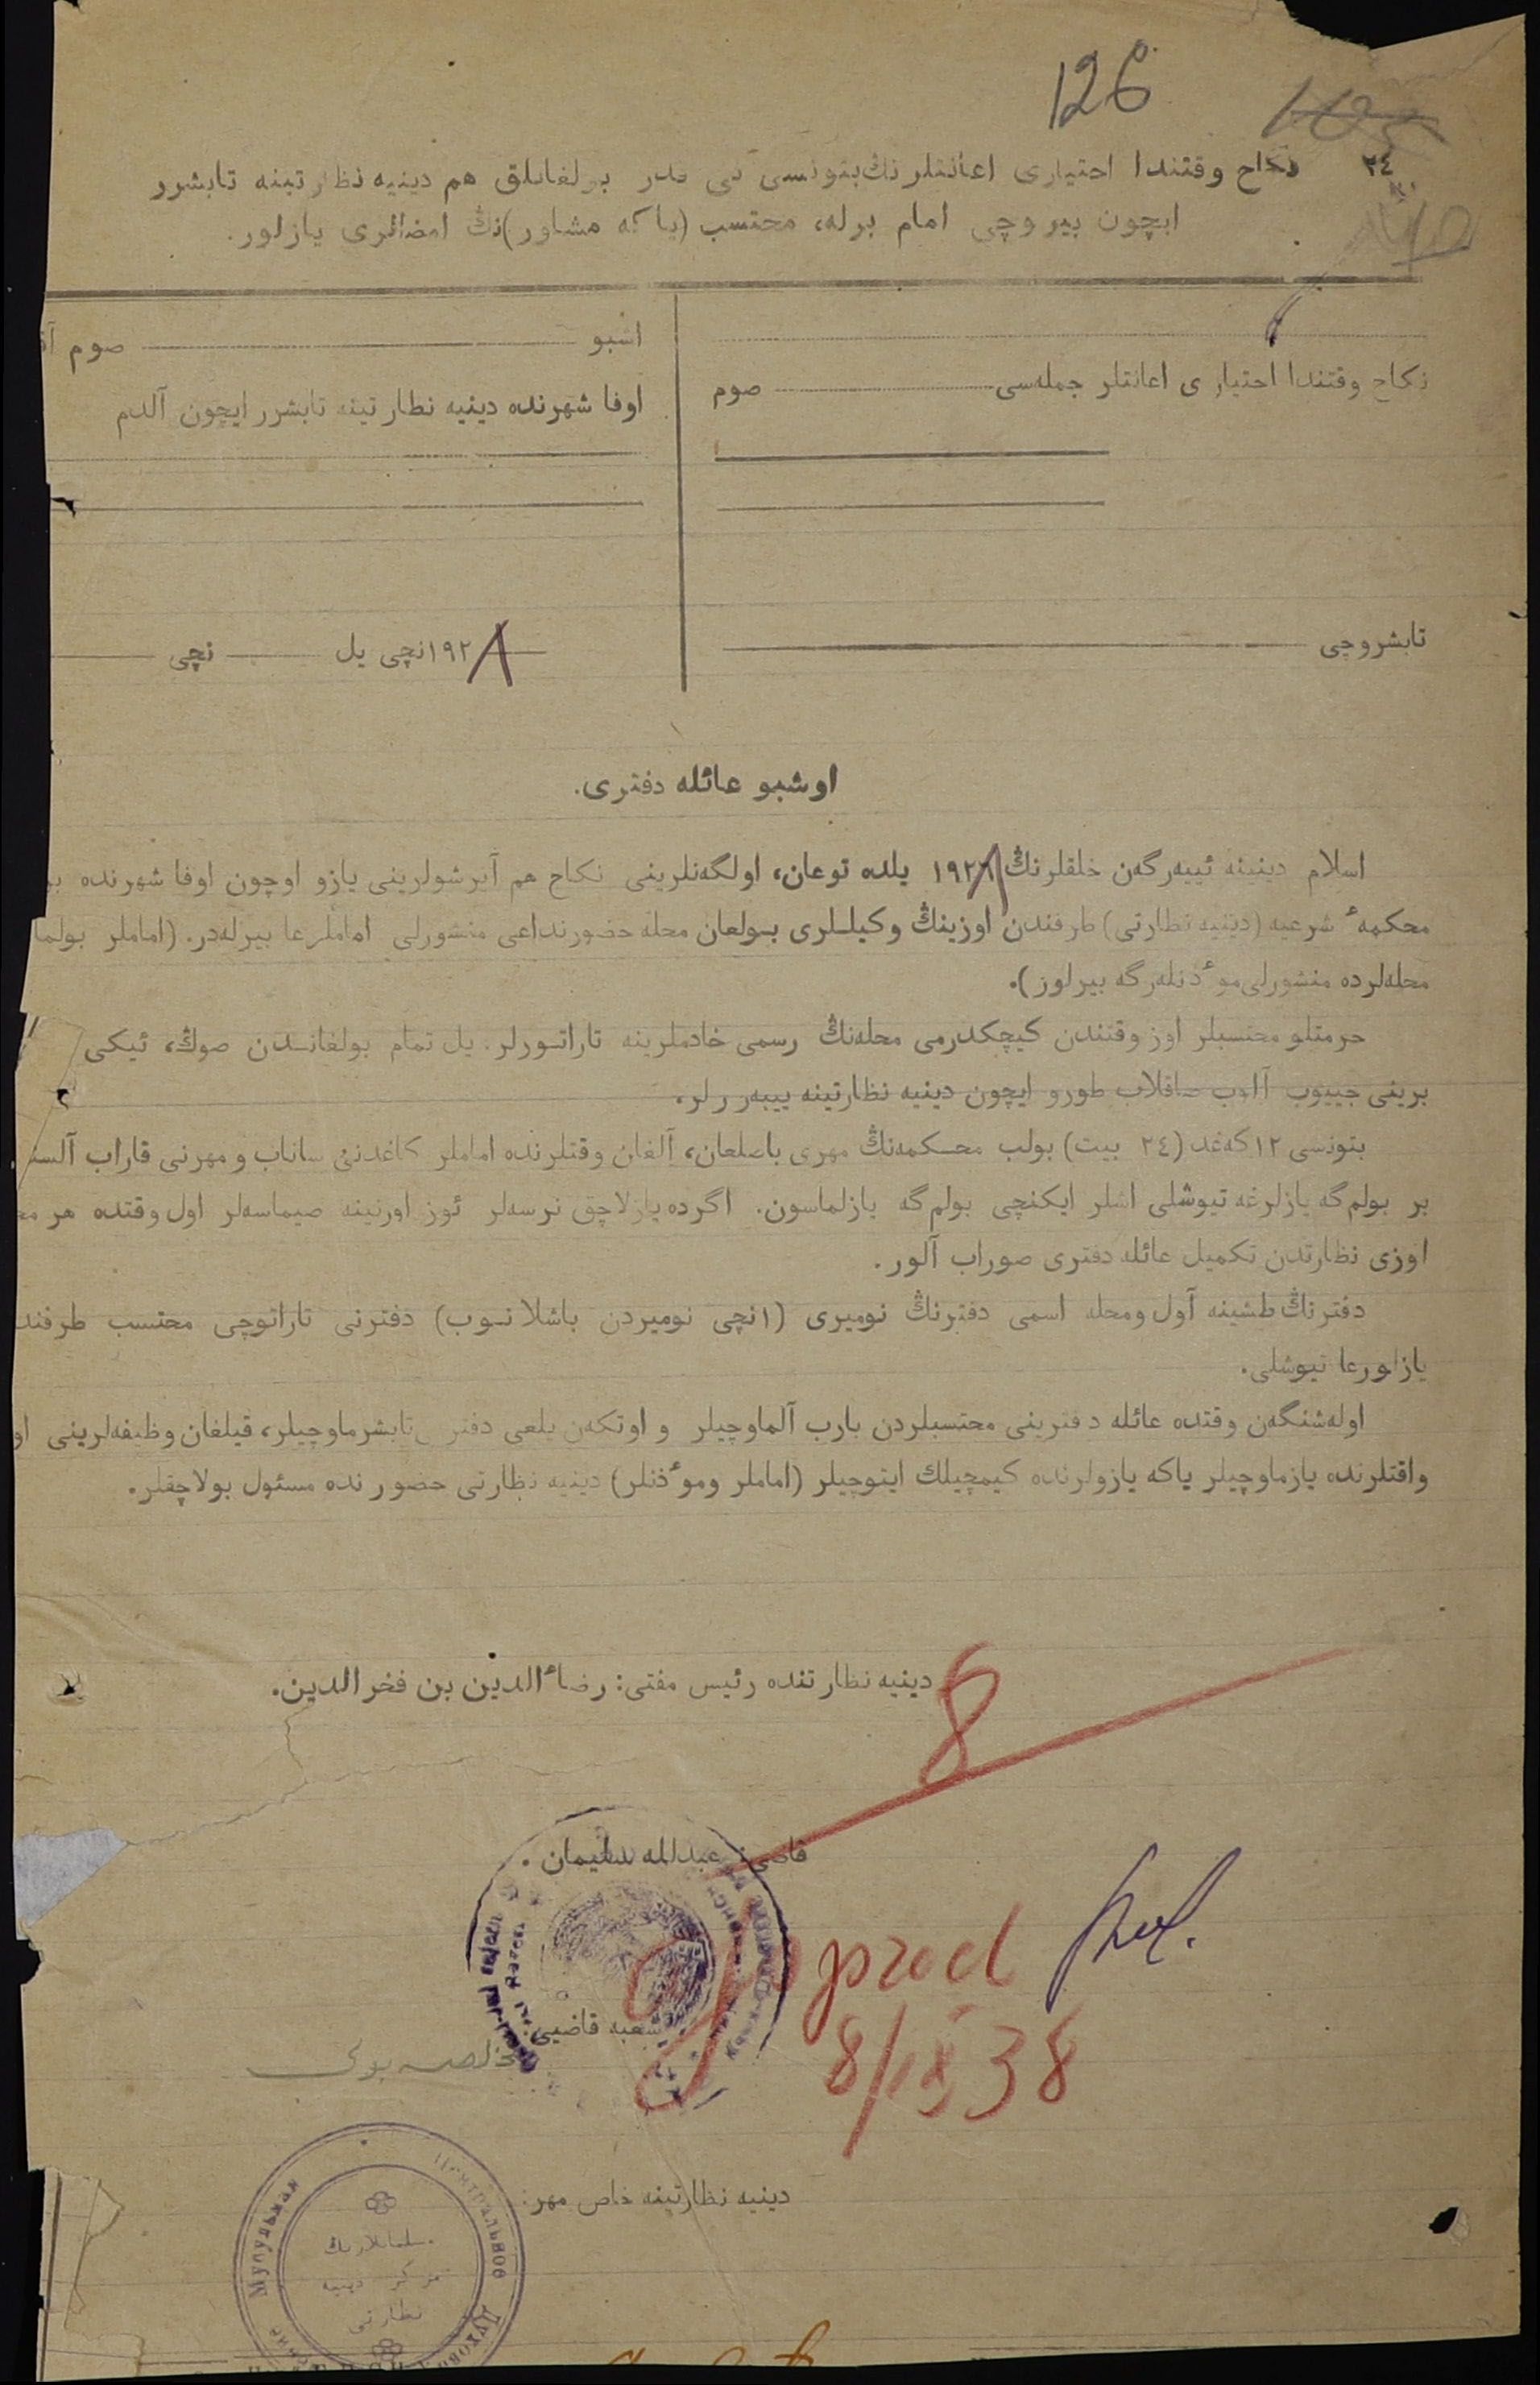 126
٢٤
نكاح وقتندا احتيارى اعانتلرنڭ بتونسى نى قدر بولغانلق هم دينيه نظارتينه تابشرر
ايچون بيروچى امام برله، محتسب (ياكه مشاور)نڭ امضالرى يازلور.
نكاح وقتندا احتيارى اعانتلر جمله‌سى صوم
تابشروچى
اشبو صوم
اوفا شهرنده دينيه نظارتينه تابشرر ايچون آلدم
١٩٢٨نچى يل نچى
اوشبو عائله دفترى.
اسلام دينينه ئييه‌رگه‌ن خلقلرنڭ ١٩٢٨ يلده توعان، اولگه‌نلرينى نكاح هم آيرشولرينى يازو اوچون اوفا شهرنده
محكمهٔ شرعيه (دينيه نظارتى) طرفندن اوزينڭ وكيللرى بولعان محله حضورنداعى منشورلى اماملرعا بيرله‌در. (اماملر بولما
محله‌لرده منشورلى موٴذنله‌رگه بيرلور).
حرمتلو محتسبلر اوز وقتندن كيچكدرمى محله‌نڭ رسمى خادملرينه تاراتورلر. يل تمام بولغاندن صوڭ، ئيكى
برينى جييوب آلوب صاقلاب طورو ايچون دينيه نظارتينه ييبه‌ررلر.
بتونسى ١٢ كه‌غد (٢٤ بيت) بولب محكمه‌نڭ مهرى باصلعان، آلغان وقتلرنده اماملر كاغدنى ساناب و مهرنى قاراب آلسن
بر بولم‌گه يازلرغه تيوشلى اشلر ايكنچى بولم‌گه يازلماسون. اگرده يازلاچق نرسه‌لر ئوز اورنينه صيماسه‌لر اول وقتده هر
اوزى نظارتدن تكميل عائله دفترى صوراب آلور.
دفترنڭ طشينه آول ومحله اسمى دفترنڭ نوميرى (١نچى نوميردن باشلانوب) دفترنى تاراتوچى محتسب طرفند
يازلورعا تيوشلى.
اوله‌شنگه‌ن وقتده عائله دفترينى محتسبلردن بارب آلماوچيلر و اوتكه‌ن يلعى دفترى تابشرماوچيلر، قيلغان وظيفه‌لرينى او
واقتلرنده يازماوچيلر ياكه يازولرنده كيمچيلك ايتوچيلر (اماملر وموٴذنلر) دينيه نظارتى حضورنده مسئول بولاچقلر.
دينيه نظارتنده رئيس مفتى: رضاٴالدين بن فخرالدين.
8
قاضى: عبدالله سليمان.
شعبه قاضيى:
8/IX 38
دينيه نظارتينه خاص مهر:
Центральное Духовн
Мусульман
مسلمانلارنڭ
مركز دينيه
نظارتى